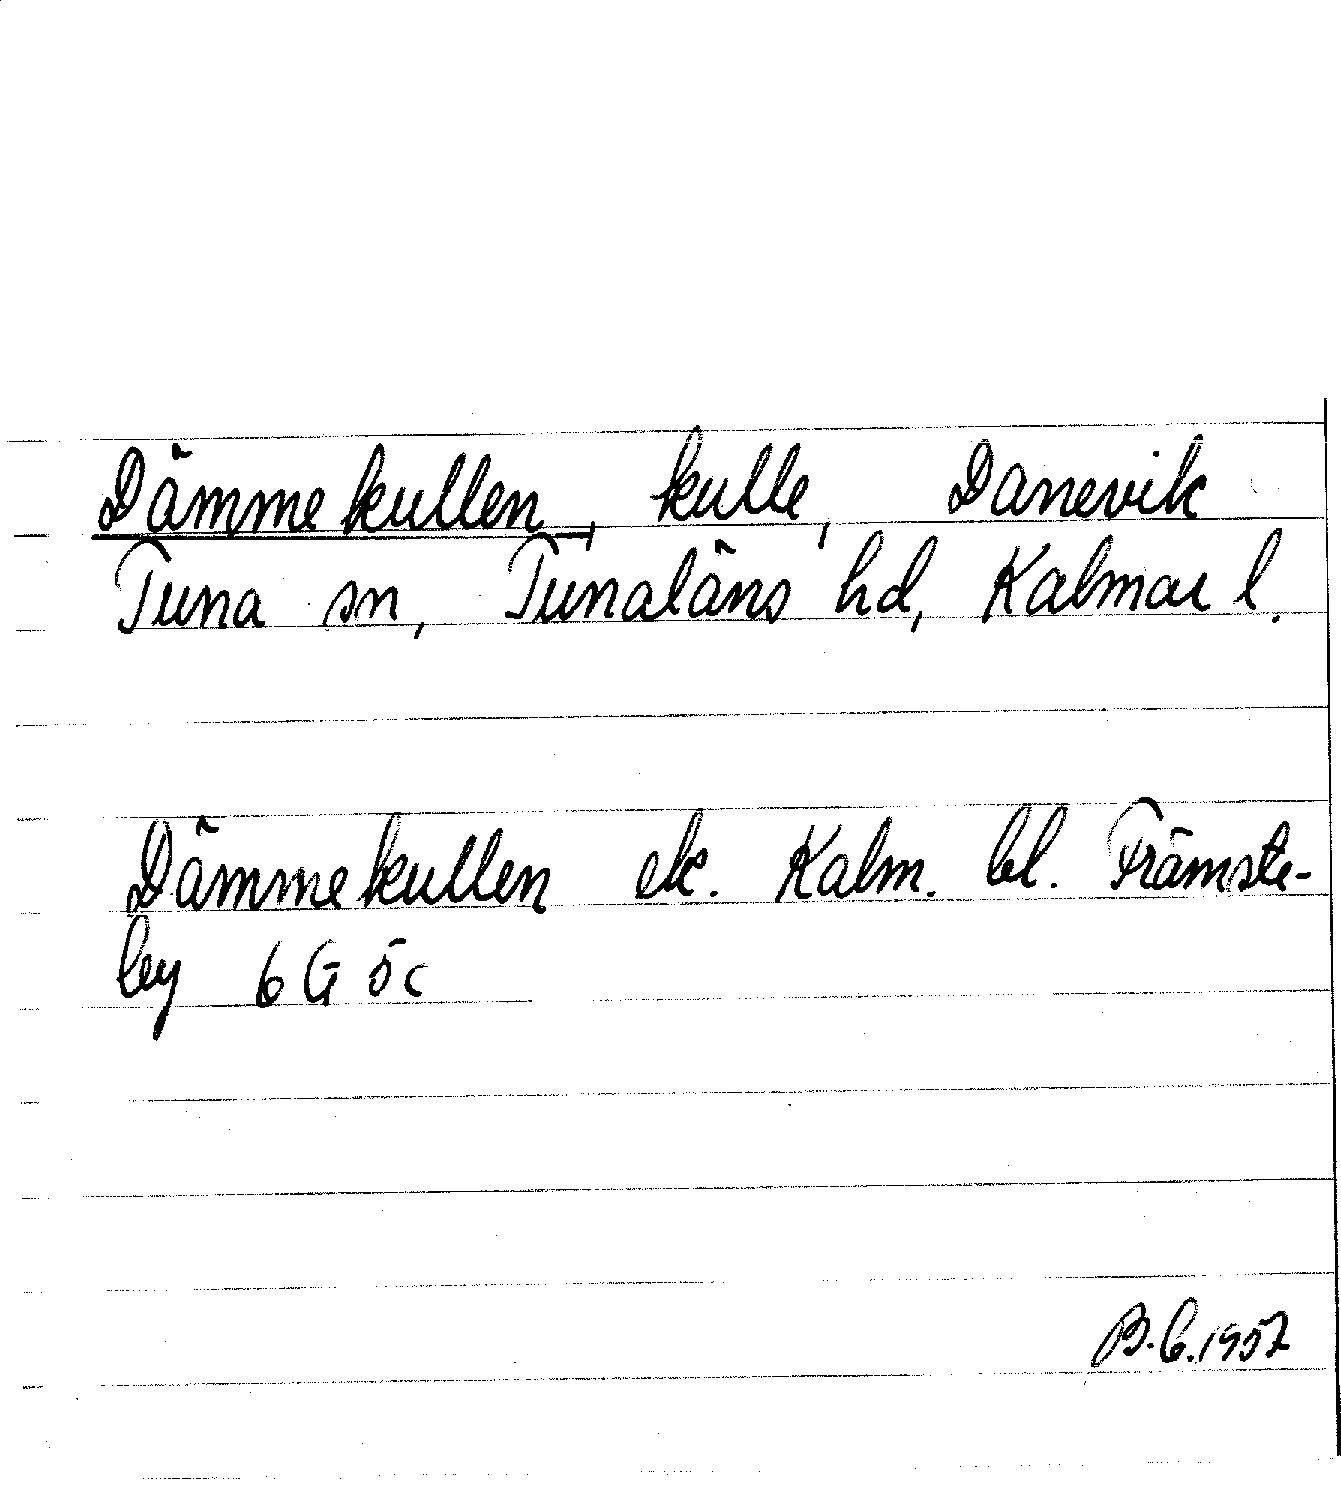 Dämmekullen, kulle, Danevik
Tuna sn, Tunaläns hd, Kalmar l.
Dämmekullen ek. Kalm. bl. Främste-
by 6 G 5c
B.C. 1957